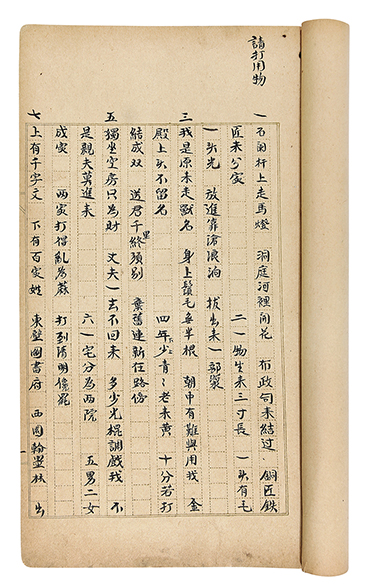 請打用物
一 石闌杆上走馬燈 洞庭河裡開花 布政司未結过 銅匠鉄
匠未分家 二一物生来三寸長 一头有毛
一头光 放進靠滄浪泃 拔出来一部漿
三我是原来走獸名 身上鬚毛無半根 朝中有難與用我 金
殿上头不留名 四年少青〻老来黄 十分若打下
結成双 送君千里終須别 棄舊連新在路傍
五獨坐空房只為財 丈夫一去不回来 多少光棍調戲我 不
是親夫莫進来 六一宅分為两院 五男二女
成家 两家打得亂為蔴 打到清明像罷
七上有千字文 下有百家姓 東壁圖書府 西園翰墨林 出